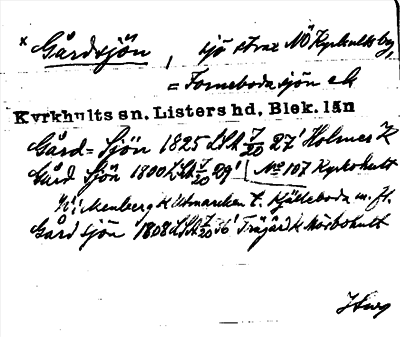 x Gårdsjön, sjö strax NÖ Kyrkults by,
= Forneboda sjön ek
Kyrkhults sn. Listers hd, Blek. län
Gård=Sjön 1825 LSA 7/20 27' Holmes K
Gård Sjön 1800 LSA 7/20 29' No 107 Kyrkohult
K Utmarken t. Kjätteboda m. fl.
Gårdsjön 1808 LSA 7/20 36' K Mörbohult